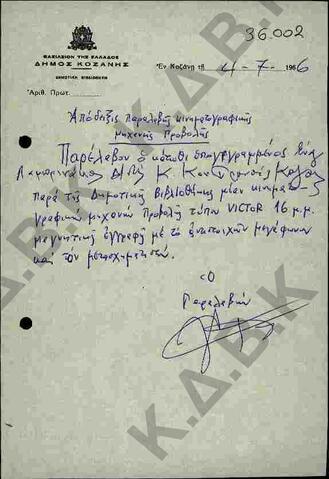 36.002
ΒΑΣΙΛΕΙΟΝ ΤΗΣ ΕΛΛΑΔΟΣ
ΔΗΜΟΣ ΚΟΖΑΝΗΣ
ΔΗΜΟΤΙΚΗ ΒΙΒΛΙΟΘΗΚΗ
Ἐν Κοζάνῃ τῇ 4-7-1966
Ἀριθ. Πρωτ.
Ἀπόδειξις παραλαβῆς κινηματογραφικῆς
μηχανῆς Προβολῆς
Παρέλαβον ὁ κάτωθι ὑπογεγραμμένος
παρὰ τῆς Δημοτικῆς Βιβλιοθήκης μίαν κινηματο-
γραφικὴν μηχανὴν Προβολῆς τύπου VICTOR 16 μ.μ.
μαγνητικῆς ἐγγραφῆς μὲ τὸ μεγάφωνον
καὶ τὸν μετασχηματιστήν.
Ὁ
Παραλαβών
Κ.Δ.Β.Κ